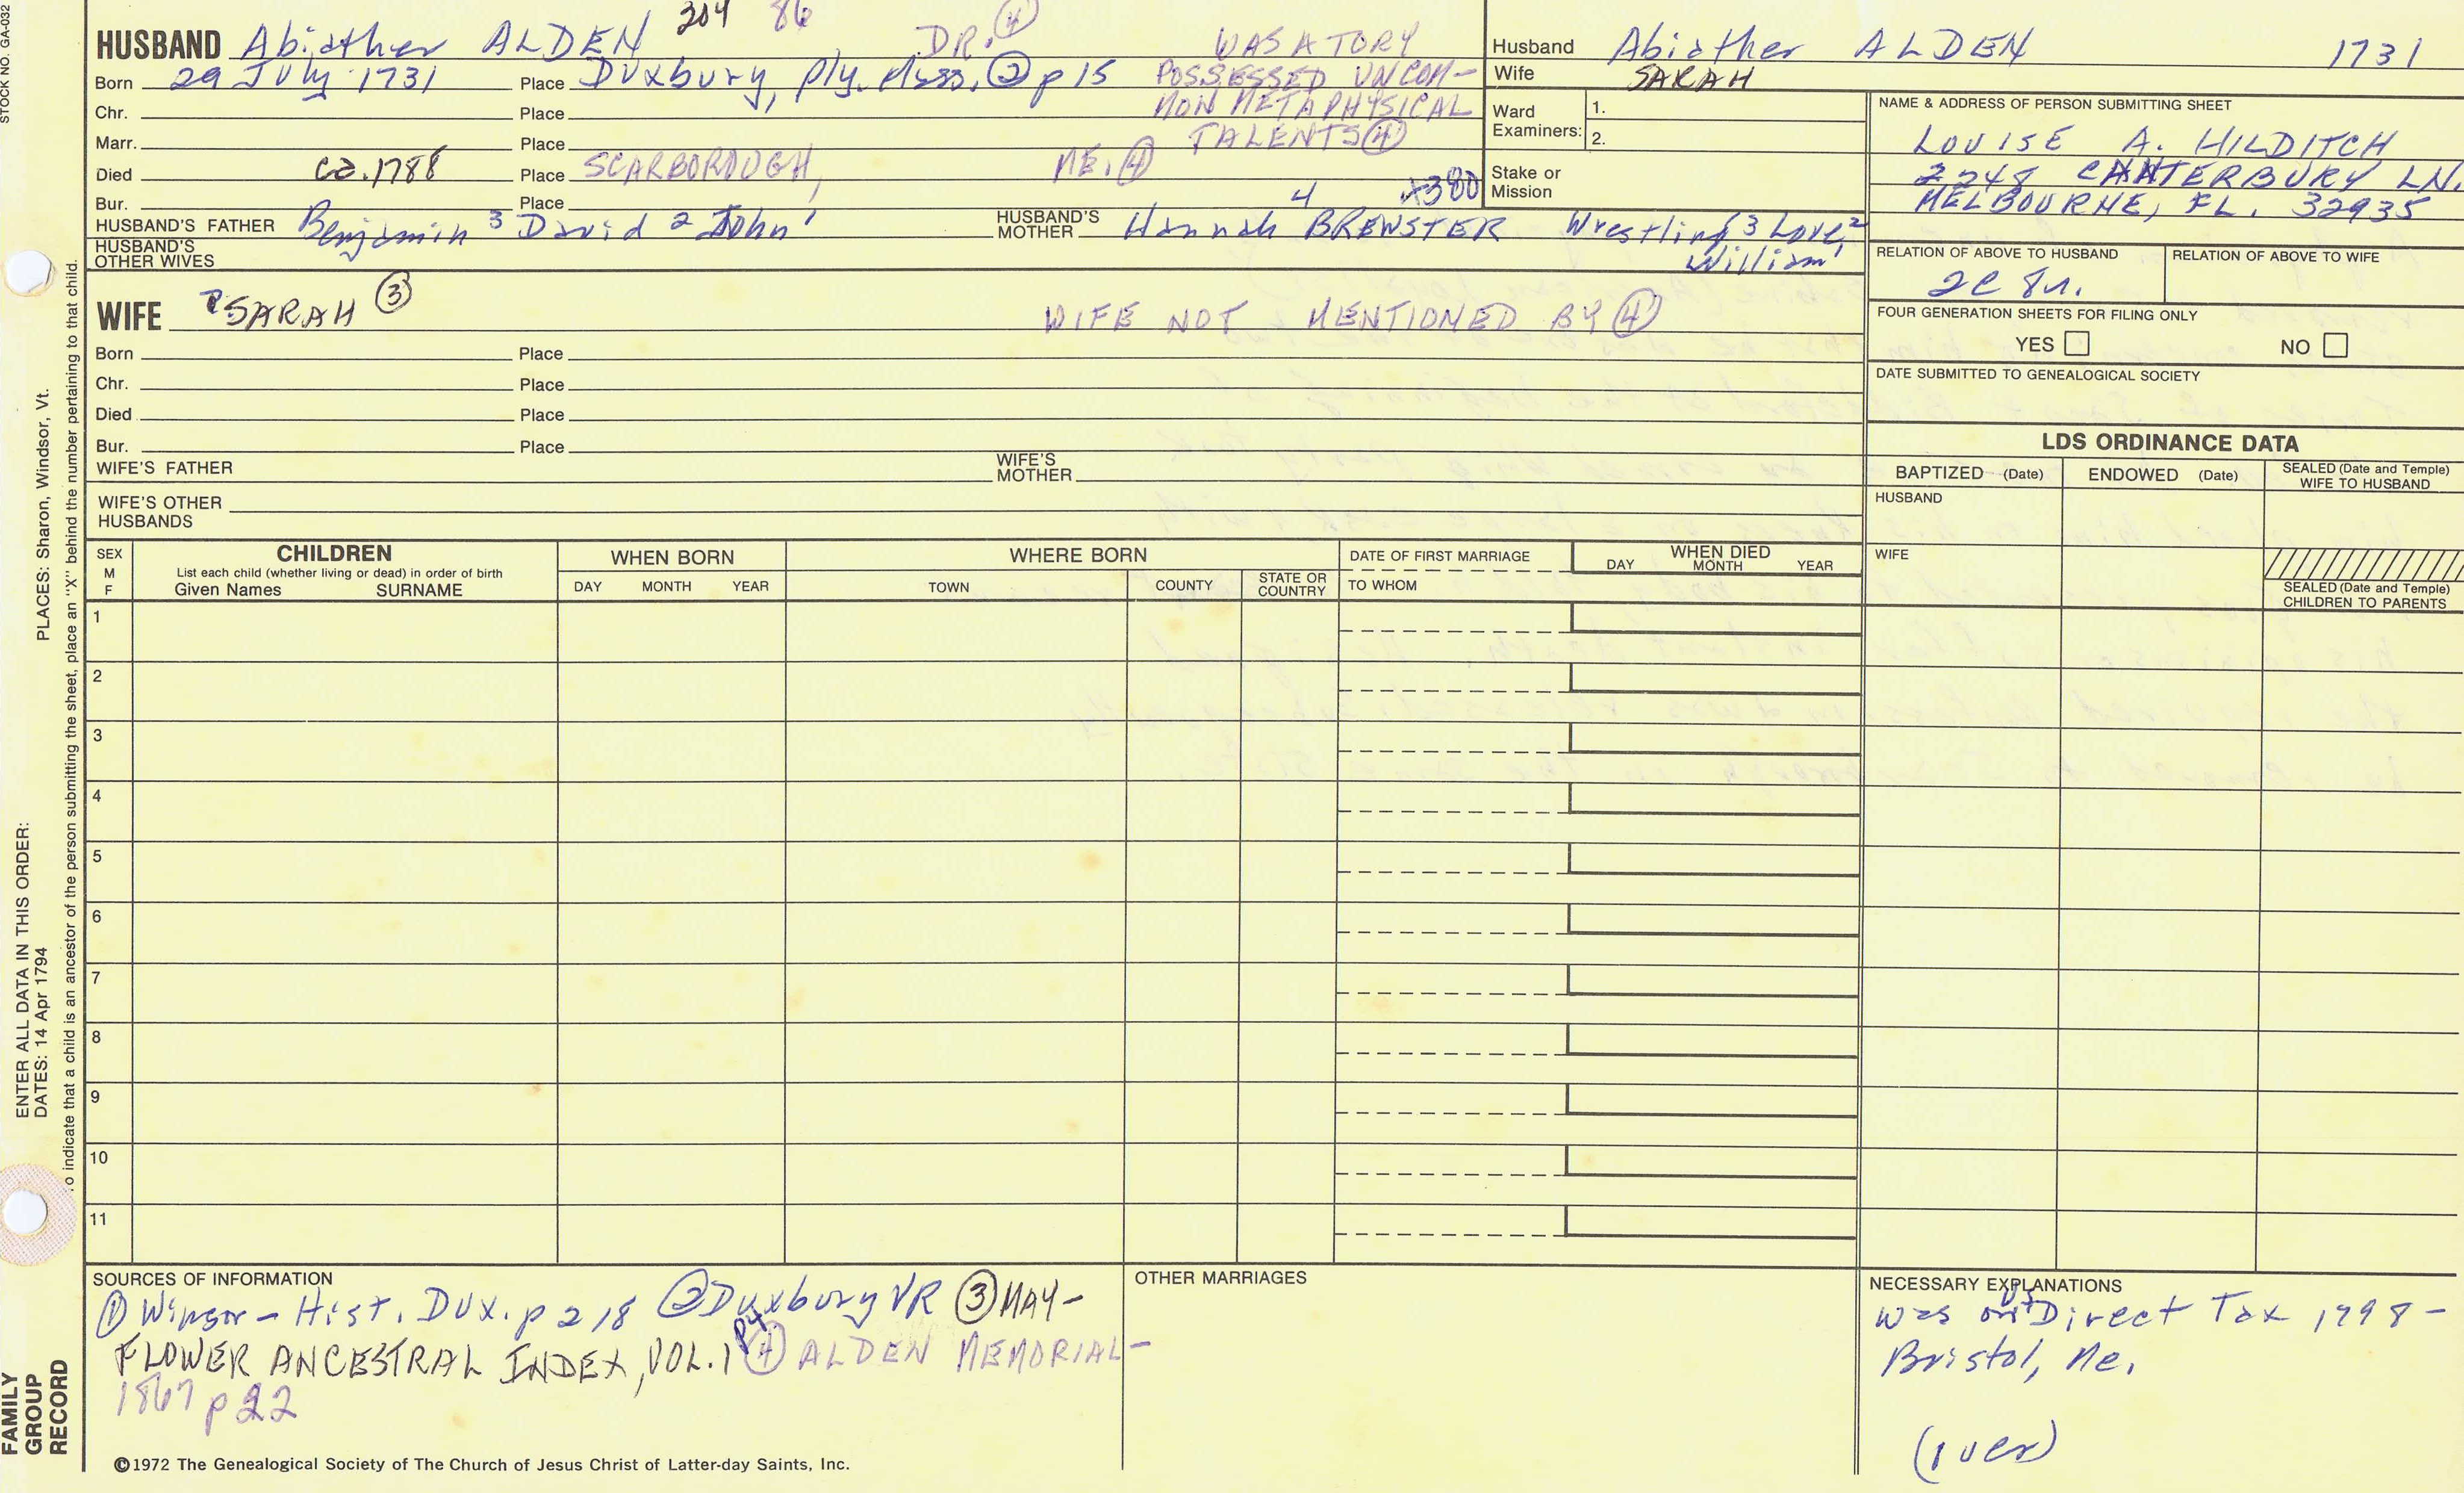 STOCK NO. GA-032
PLACES: Sharon, Windsor, Vt.
ENTER ALL DATA IN THIS ORDER:
DATES: 14 Apr 1794
o indicate that a child is an ancestor of the person submitting the sheet, place an "X" behind the number pertaining to that child.
FAMILY
GROUP
RECORD
304 86
HUSBAND Abiather ALDEN DR. ④
Born 29 July 1731 Place Duxbury, Ply. Mass. ② p 15
WAS A TORY
POSSESSED UNCOM-
MON METAPHYSICAL
TALENTS ④
Chr. Place
Marr. Place
Died ca. 1788 Place SCARBOROUGH, ME. ④
Bur. Place
HUSBAND'S FATHER Benjamin 3 David 2 John 1
HUSBAND'S MOTHER Hannah 4 BREWSTER Wrestling 3 Love, 2
William 1
HUSBAND'S
OTHER WIVES
WIFE SARAH ③ WIFE NOT MENTIONED BY ④
Born Place
Chr. Place
Died Place
Bur. Place
WIFE'S FATHER WIFE'S MOTHER
WIFE'S OTHER
HUSBANDS
Husband Abiather ALDEN 1731
Wife SARAH
Ward
Examiners: 1.
2.
Stake or
Mission
NAME & ADDRESS OF PERSON SUBMITTING SHEET
LOUISE A. HILDITCH
2248 CANTERBURY LN.
MELBOURNE, FL. 32935
RELATION OF ABOVE TO HUSBAND RELATION OF ABOVE TO WIFE
2C 8r.
FOUR GENERATION SHEETS FOR FILING ONLY
YES NO
DATE SUBMITTED TO GENEALOGICAL SOCIETY
LDS ORDINANCE DATA
BAPTIZED (Date) ENDOWED (Date) SEALED (Date and Temple)
WIFE TO HUSBAND
HUSBAND
WIFE
SEALED (Date and Temple)
CHILDREN TO PARENTS
SEX
M
F
CHILDREN
List each child (whether living or dead) in order of birth
Given Names SURNAME
WHEN BORN
DAY MONTH YEAR
WHERE BORN
TOWN COUNTY STATE OR COUNTRY
DATE OF FIRST MARRIAGE
TO WHOM
WHEN DIED
DAY MONTH YEAR
1
2
3
4
5
6
7
8
9
10
11
SOURCES OF INFORMATION
① Winsor - Hist. Dux. p 218 ② Duxbury VR ③ MAY-
FLOWER ANCESTRAL INDEX, VOL. 1 p4 ④ ALDEN MEMORIAL-
1867 p 22
OTHER MARRIAGES
NECESSARY EXPLANATIONS
was on US Direct Tax 1798-
Bristol, Me.
(over)
©1972 The Genealogical Society of The Church of Jesus Christ of Latter-day Saints, Inc.